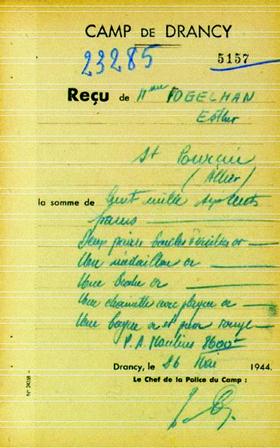 CAMP DE DRANCY
23285 5157
Reçu de Mme FOGELMAN
Esther
St Pourçain
(Allier)
la somme de Cent mille sept cents
francs
Deux paires boucles d'oreilles or
Une médaillon or
Une broche or
Une chainette avec plaque or
Une bague or et pierre rouge
P.A. Moulins 8600
Drancy, le 26 Mai 1944.
Le Chef de la Police du Camp :